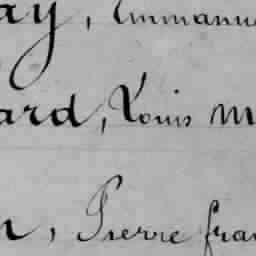 ay, Emmanu
ard, Louis M
n, Pierre fran